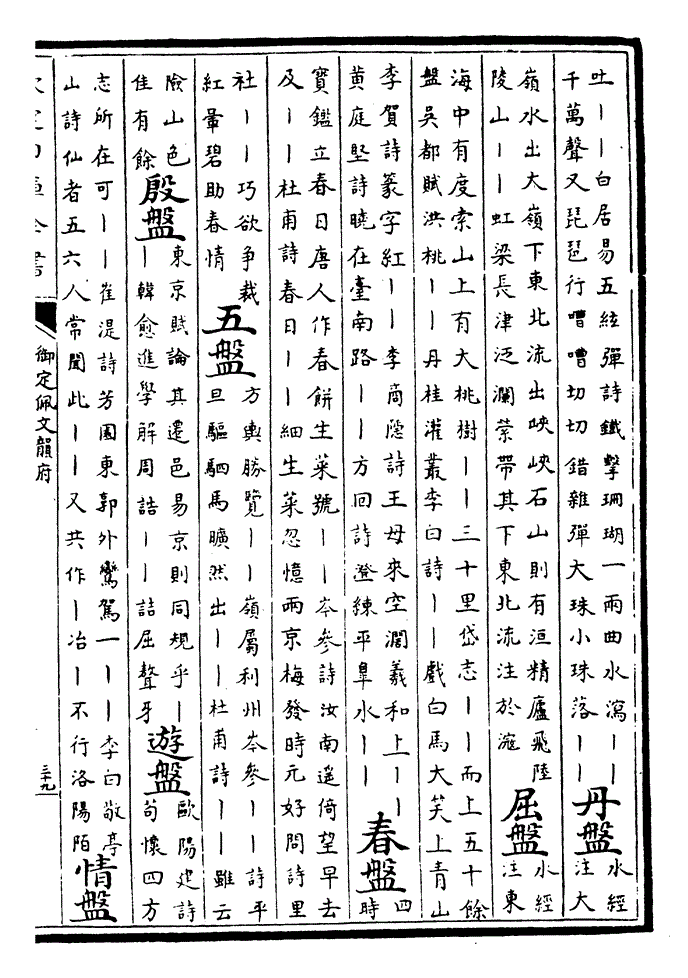 吐丨丨白居易五絃彈詩鐵擊珊瑚一兩曲水瀉丨丨
千萬聲又琵琶行嘈嘈切切錯雜彈大珠小珠落丨丨
丹盤
水經
注大
嶺水出大嶺下東北流出峽峽石山則有洹精廬飛陸
陵山丨丨虹梁長津泛瀾縈帶其下東北流注於滱
屈盤
水經
注東
海中有度索山上有大桃樹丨丨三十里岱志丨丨而上五十餘
盤吳都賦洪桃丨丨丹桂灌叢李白詩丨丨戲白馬大笑上青山
李賀詩篆字紅丨丨李商隱詩王母來空濶羲和上丨丨
黄庭堅詩曉在臺南路丨丨方回詩澄練平臯水丨丨
春盤
四
時
寳鑑立春日唐人作春餅生菜號丨丨岑參詩汝南遥倚望早去
及丨丨杜甫詩春日丨丨細生菜忽憶兩京梅發時元好問詩里
社丨丨巧欲争裁
紅暈碧助春情
五盤
方輿勝覽丨丨嶺屬利州岑參丨丨詩平
旦驅駟馬曠然出丨丨杜甫詩丨丨雖云
險山色
佳有餘
殷盤
東京賦論其遷邑易京則同規乎丨
丨韓愈進學解周誥丨丨詰屈聱牙
遊盤
歐陽建詩
苟懷四方
志所在可丨丨崔湜詩芳園東郭外鸞駕一丨丨李白敬亭
山詩仙者五六人常聞此丨丨又共作丨冶丨不行洛陽陌
情盤
欽定四庫全書
御定佩文韻府
三十九